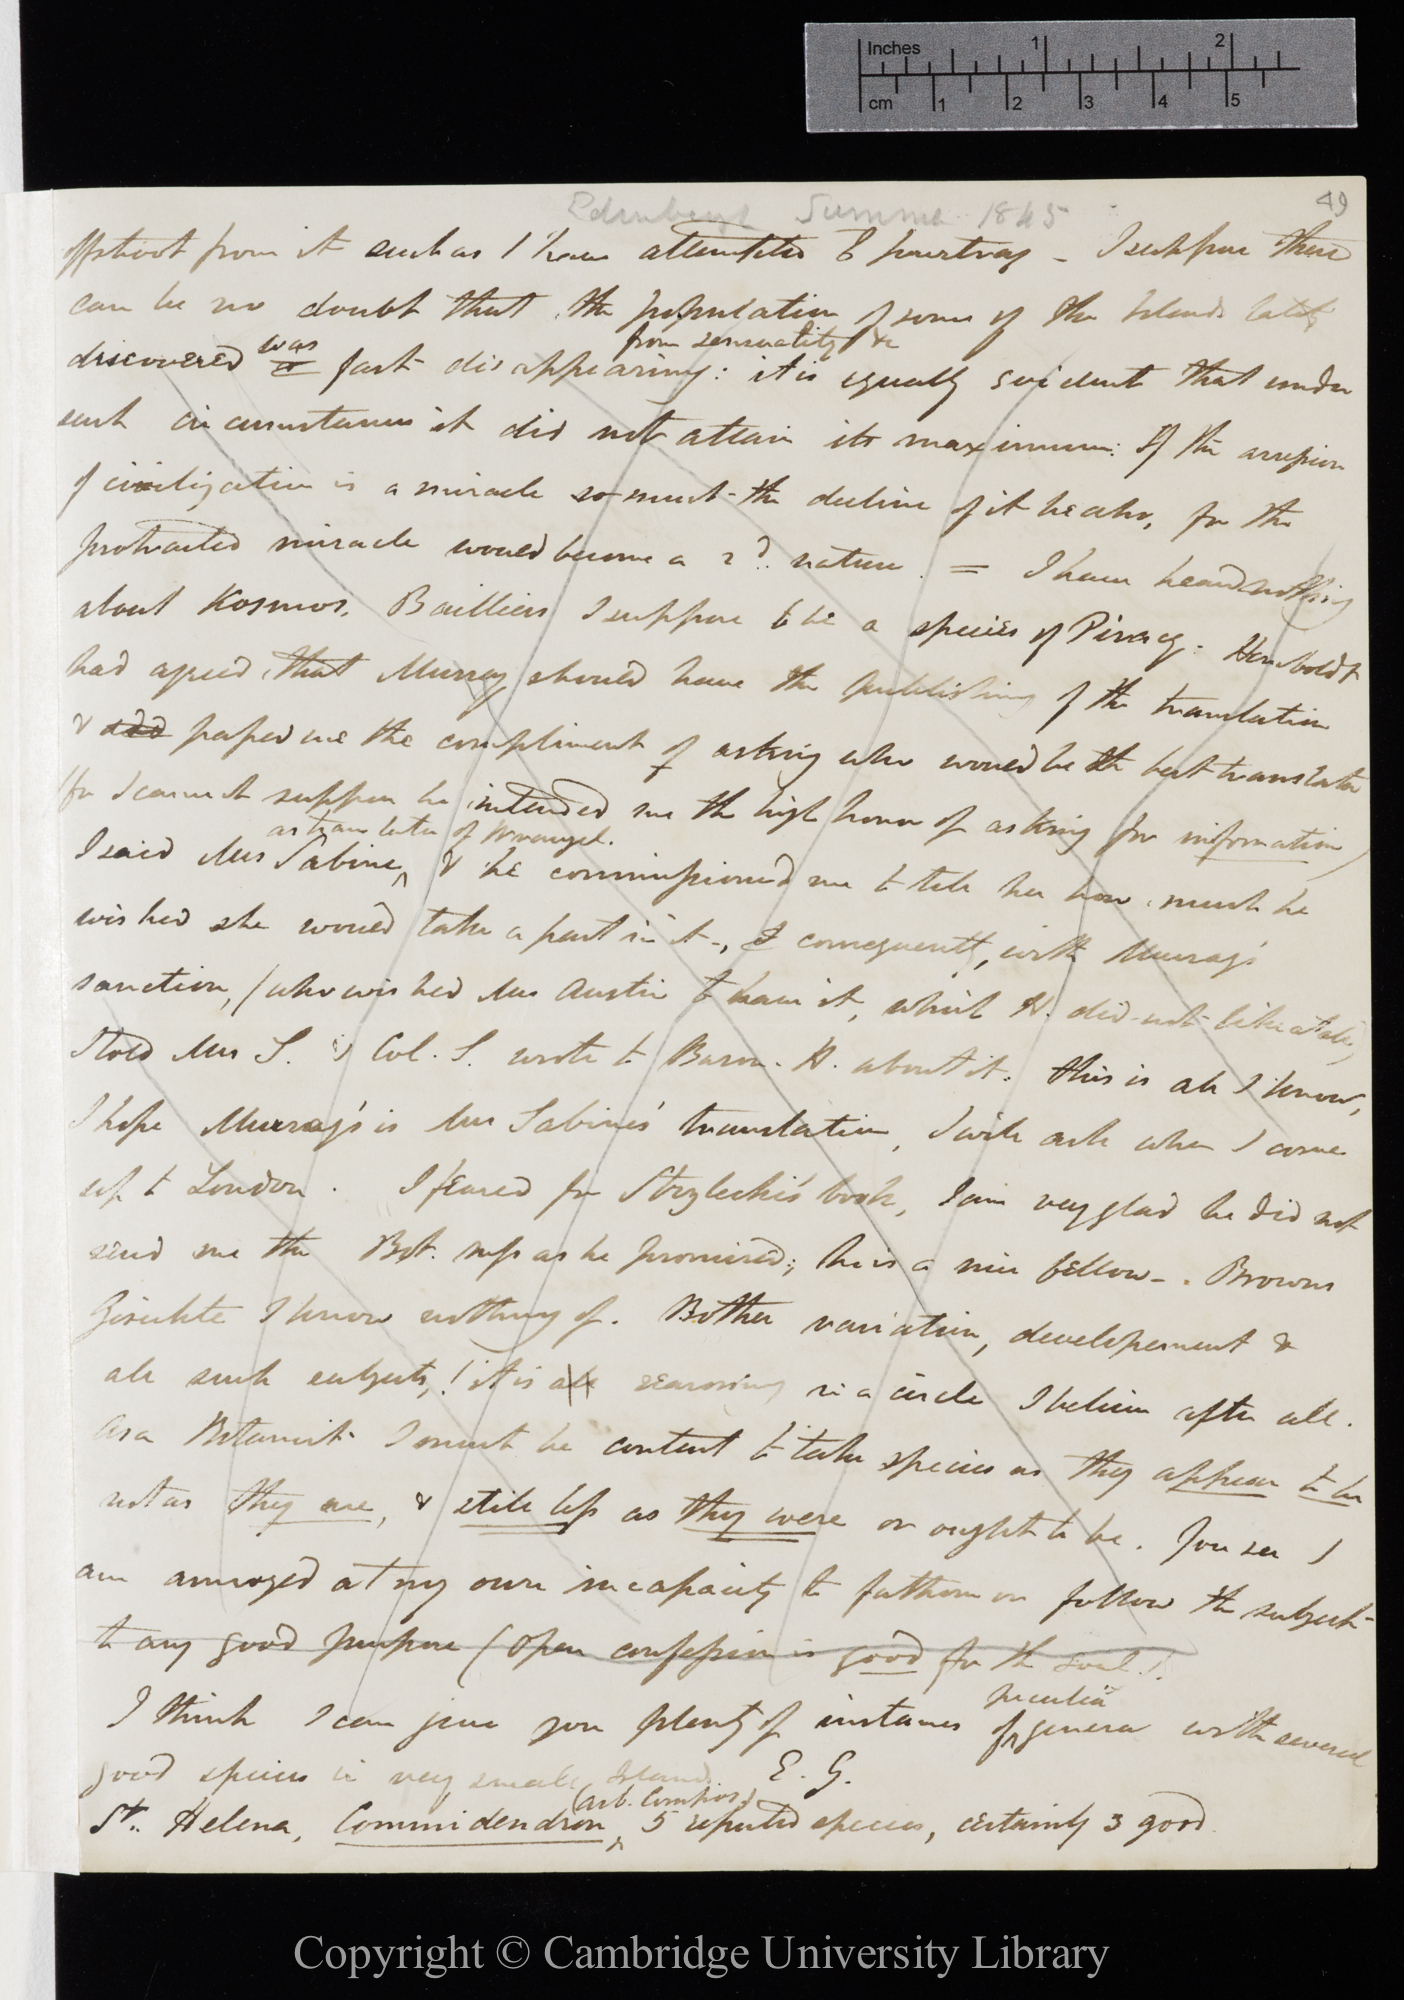 Inches 1 2
cm 1 2 3 4 5
Edinburgh Summer 1845
49
offshoot from it such as I have attempted to pourtray – I suppose there
can be no doubt that the population of some of the Islands lately
from sensuality &c
discovered was is fast disappearing: it is equally evident that under
such circumstances it did not attain its maximum: If the
of civilization is a miracle so must the decline of it be also, for the
protracted miracle would become a 2d. nature. = I have heard nothing
about Kosmos. Bailliers I suppose to be a species of Piracy. Humboldt
had agreed that Murray should have the publishing of the translation
& did paped me the compliment of asking who would be the best translator
(for I cannot suppose he intended me the high honor of asking for information)
as translator of Wrangel.
I said Mrs Sabine, & he commissioned me to tell her how much he
wished she would take a part in it –, I consequently, with Murray's
sanction, (who wished Mrs Austin to have it, which H. did not like at all,)
told Mrs S. & Col. S. wrote to Baron. H. about it: this is all I know,
I hope Murray's is Mrs Sabine's translation, I will ask when I come
up to London. I feared for Strzlecki's book, I am very glad he did not
send me the Bot. mss as he promised; he is a nice fellow –. Browns
I know nothing of. Bother variation, developement &
all such subjects,! it is all reasoning in a circle I believe after all.
As a Botanist I must be content to take species as they appear to be
not as they are, & still less as they were or ought to be. You see I
am annoyed at my own incapacity to fathom or follow the subject
to any good purpose (open confession is good for the soul.!
peculiar
I think I can give you plenty of instances of genera with several
good species in very small Islands E. G.
(arb. Compos.)
St. Helena, Commidendron, 5 reputed species, certainly 3 good.
Copyright © Cambridge University Library